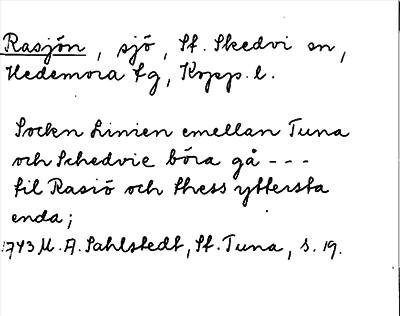 Rasjön, sjö, St. Skedvi sn,
Hedemora tg, Kopp. l.
Sockn Linien emellan Tuna
och Schedvie böra gå - - -
til Rasiö och thess yttersta
enda;
1743 M. A. Sahlstedt, St. Tuna, s. 19.